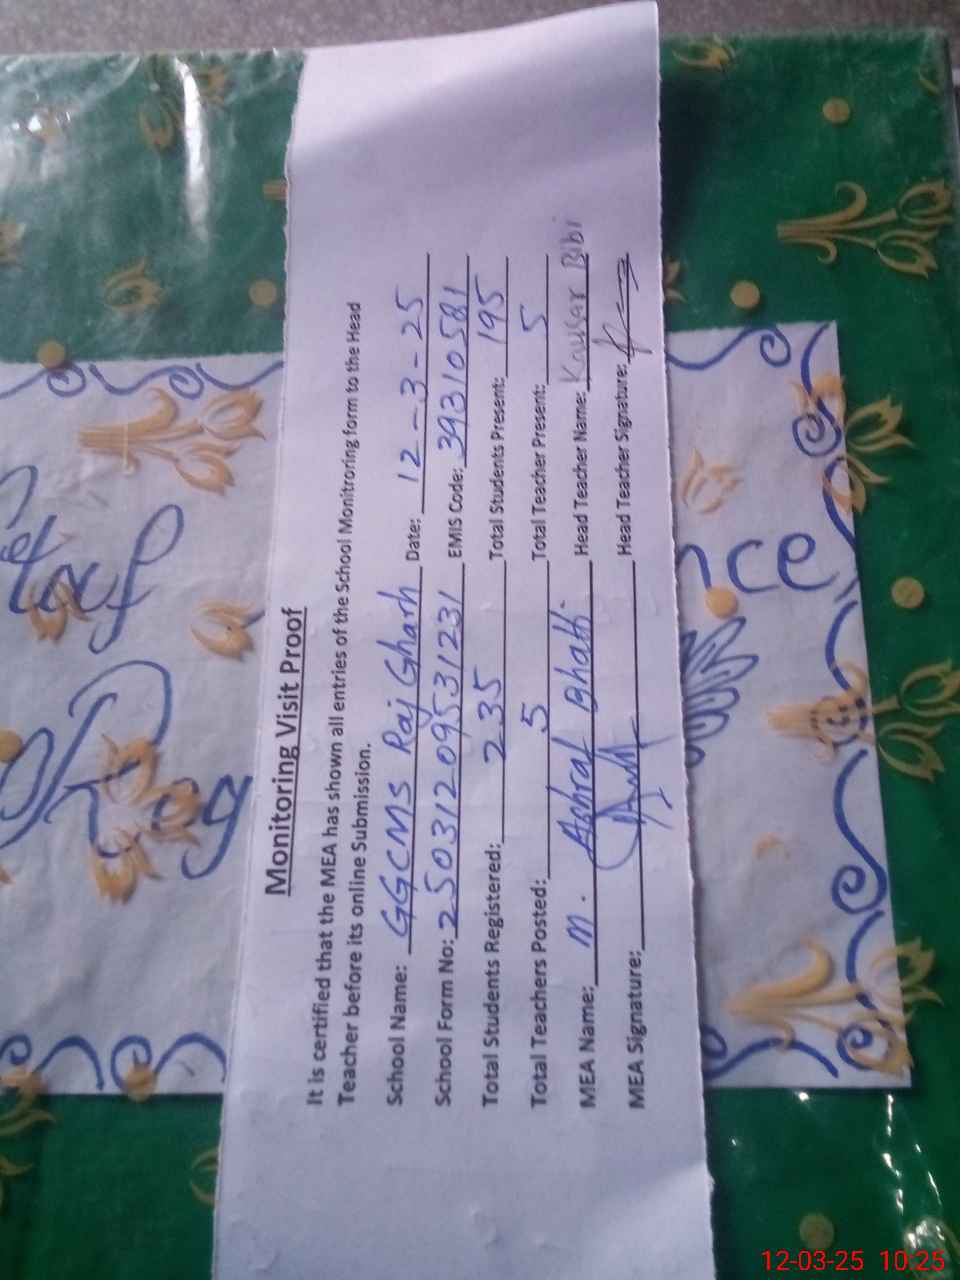 Monitoring Visit Proof
It is certified that the MEA has shown all entries of the School Monitroring form to the Head
Teacher before its online Submission.
School Name: GGCMS Raj Gharh Date: 12-3-25
School Form No: 25031209531231 EMIS Code: 39310581
Total Students Registered: 235 Total Students Present: 195
Total Teachers Posted: 5 Total Teacher Present: 5
MEA Name: M. Ashraf Bhatti. Head Teacher Name: Kausar Bibi
MEA Signature: Head Teacher Signature:
Staf
nce
12-03-25 10:25